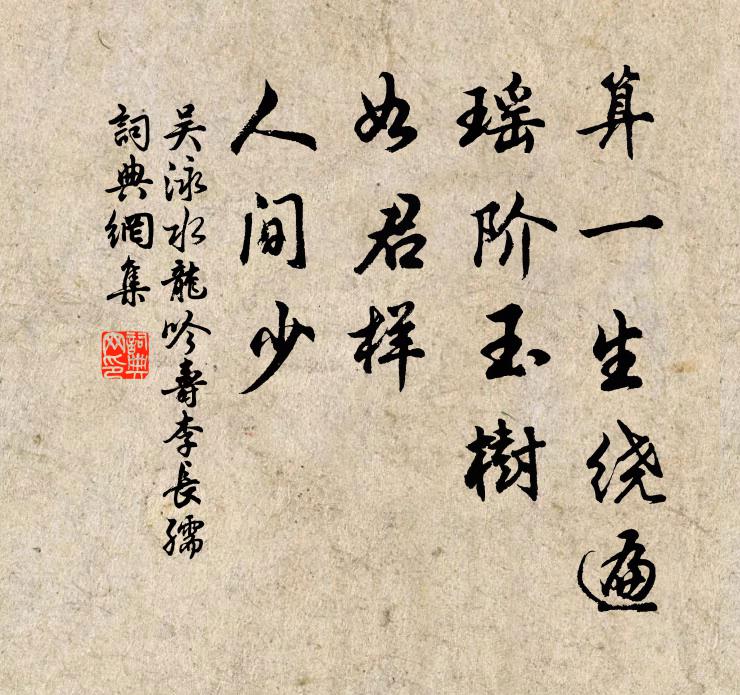 算一生绕遍
瑶阶玉樹
如君样
人间少
吴泳水龍吟壽李長孺
詞典網集
詞典網印